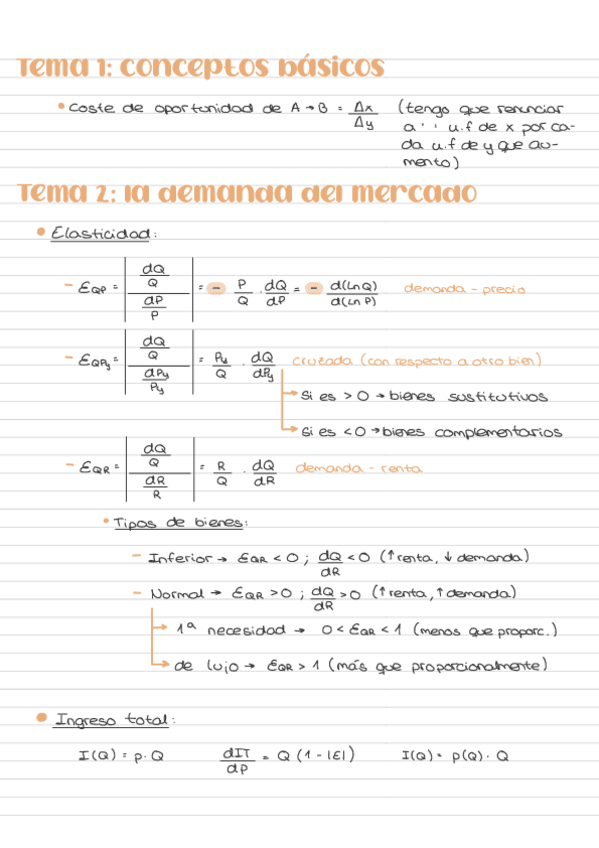 Tema 1: conceptos básicos
• Coste de oportunidad de A → B = Δx / Δy (tengo que renunciar
a · · u.f de x por ca-
da u.f de y que au-
mento)
Tema 2: la demanda del mercado
• Elasticidad:
- ƐQP = | (dQ/Q) / (dP/P) | = - P/Q · dQ/dP = - d(LnQ)/d(Ln P) demanda - precio
- ƐQPy = | (dQ/Q) / (dPy/Py) | = Py/Q · dQ/dPy cruzada (con respecto a otro bien)
Si es > 0 → bienes sustitutivos
Si es < 0 → bienes complementarios
- ƐQR = | (dQ/Q) / (dR/R) | = R/Q · dQ/dR demanda - renta
• Tipos de bienes:
- Inferior → ƐQR < 0 ; dQ/dR < 0 (↑ renta, ↓ demanda)
- Normal → ƐQR > 0 ; dQ/dR > 0 (↑ renta, ↑ demanda)
1ª necesidad → 0 < ƐQR < 1 (menos que proporc.)
de lujo → ƐQR > 1 (más que proporcionalmente)
• Ingreso total:
I(Q) = p · Q dIT/dP = Q (1 - |Ɛ|) I(Q) = p(Q) · Q